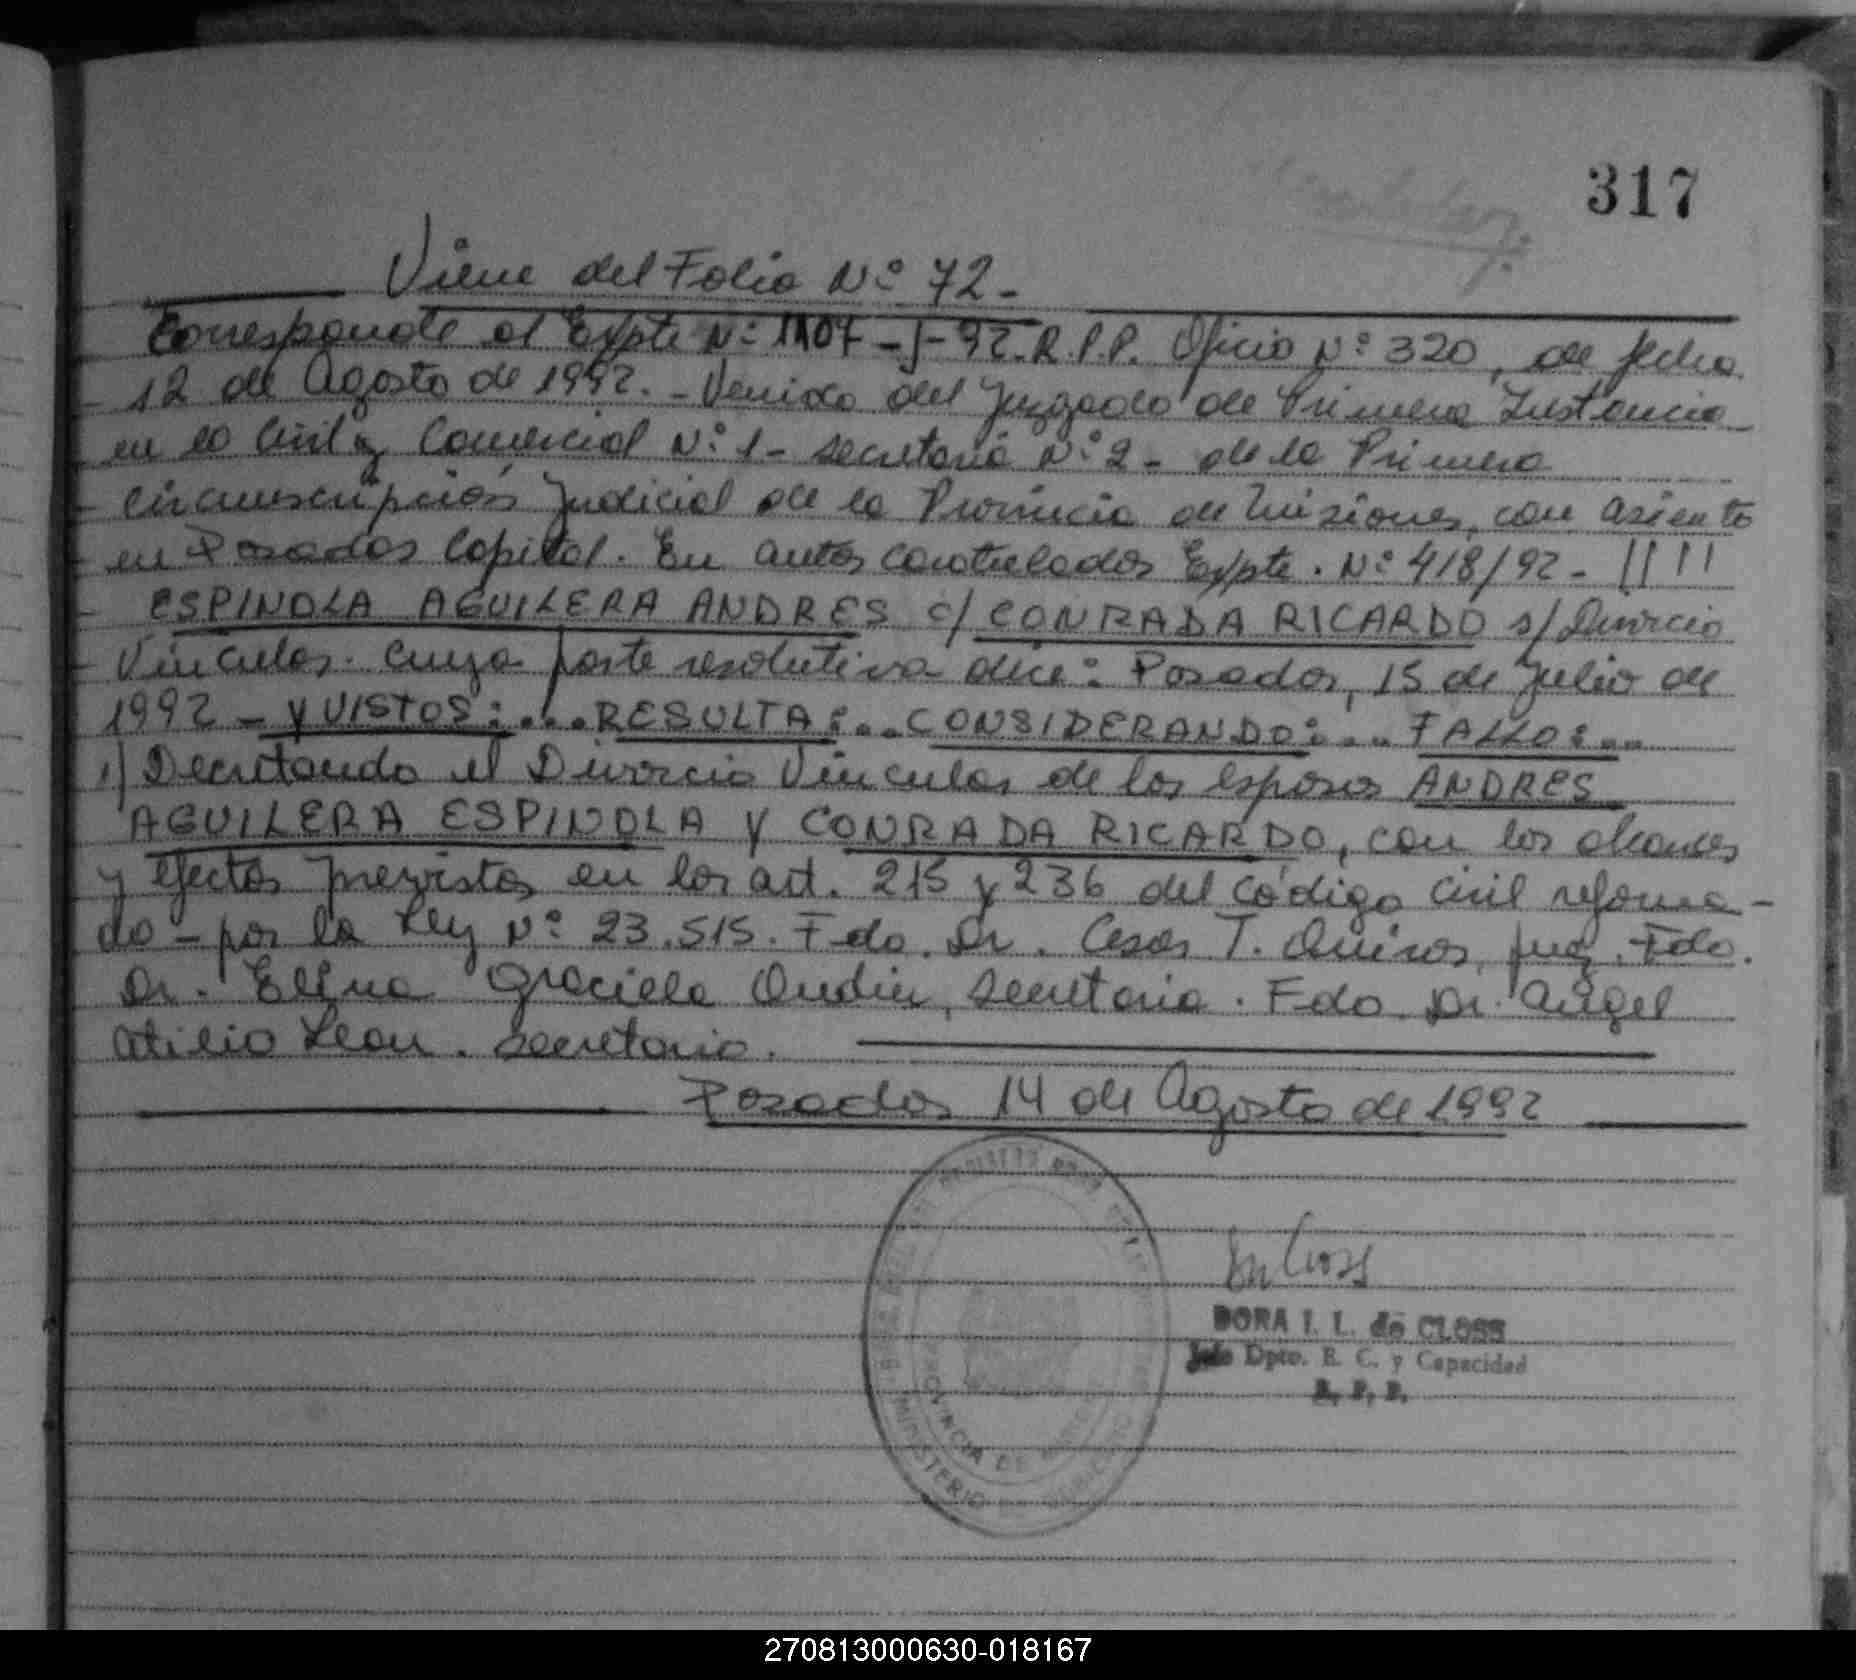 317
Viene del Folio Nº 72-
Corresponde al Expte Nº 1107-J-92. R.P.P. Oficio Nº 320, de fecha
12 de Agosto de 1992. - Venido del Juzgado de Primera Instancia
en lo Civil y Comercial Nº 1 - secretaria Nº 2 - de la Primera
circunscripción Judicial de la Provincia de Misiones, con asiento
en Posadas Capital. En autos caratulados Expte. Nº 418/92 -
ESPINOLA AGUILERA ANDRES c/ CONRADA RICARDO s/ Divorcio
Vincular. cuya parte resolutiva dice: Posadas, 15 de Julio de
1992 - Y VISTOS:... RESULTA:... CONSIDERANDO:... FALLO:...
1) Decretando el Divorcio Vincular de los esposos ANDRES
AGUILERA ESPINOLA Y CONRADA RICARDO, con los alcances
y efectos previstos en los art. 215 y 236 del Código Civil reforma-
do - por la Ley Nº 23.515. Fdo. Dr. Cesar T. Quiros, Juez. Fdo.
Dr. Elena Graciela Oudin, secretaria. Fdo. Dr. Angel
Atilio Leon. secretario.
Posadas 14 de Agosto de 1992
PROVINCIA DE
MINISTERIO
DORA I. L. de CLOSS
Jefe Dpto. E. C. y Capacidad
R. P. P.
270813000630-018167